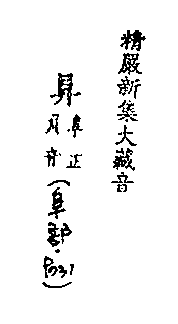 精嚴新集大藏音
阜正
音
(阜部.P031)